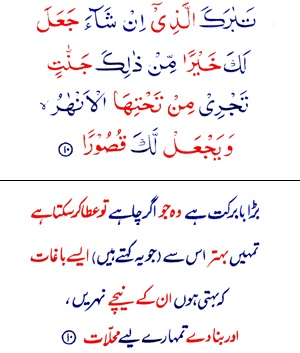 تَبٰرَكَ الَّذِیْۤ اِنْ شَآءَ جَعَلَ
لَكَ خَیْرًا مِّنْ ذٰلِكَ جَنّٰتٍ
تَجْرِیْ مِنْ تَحْتِهَا الْاَنْهٰرُ ۙ
وَ یَجْعَلْ لَّكَ قُصُوْرًا ﴿۱۰﴾
بڑا بابرکت ہے وہ جو اگر چاہے تو عطا کر سکتا ہے
تمہیں بہتر اس سے (جو یہ کہتے ہیں) ایسے باغات
کہ بہتی ہوں ان کے نیچے نہریں،
اور بنا دے تمہارے لیے محلّات ﴿۱۰﴾